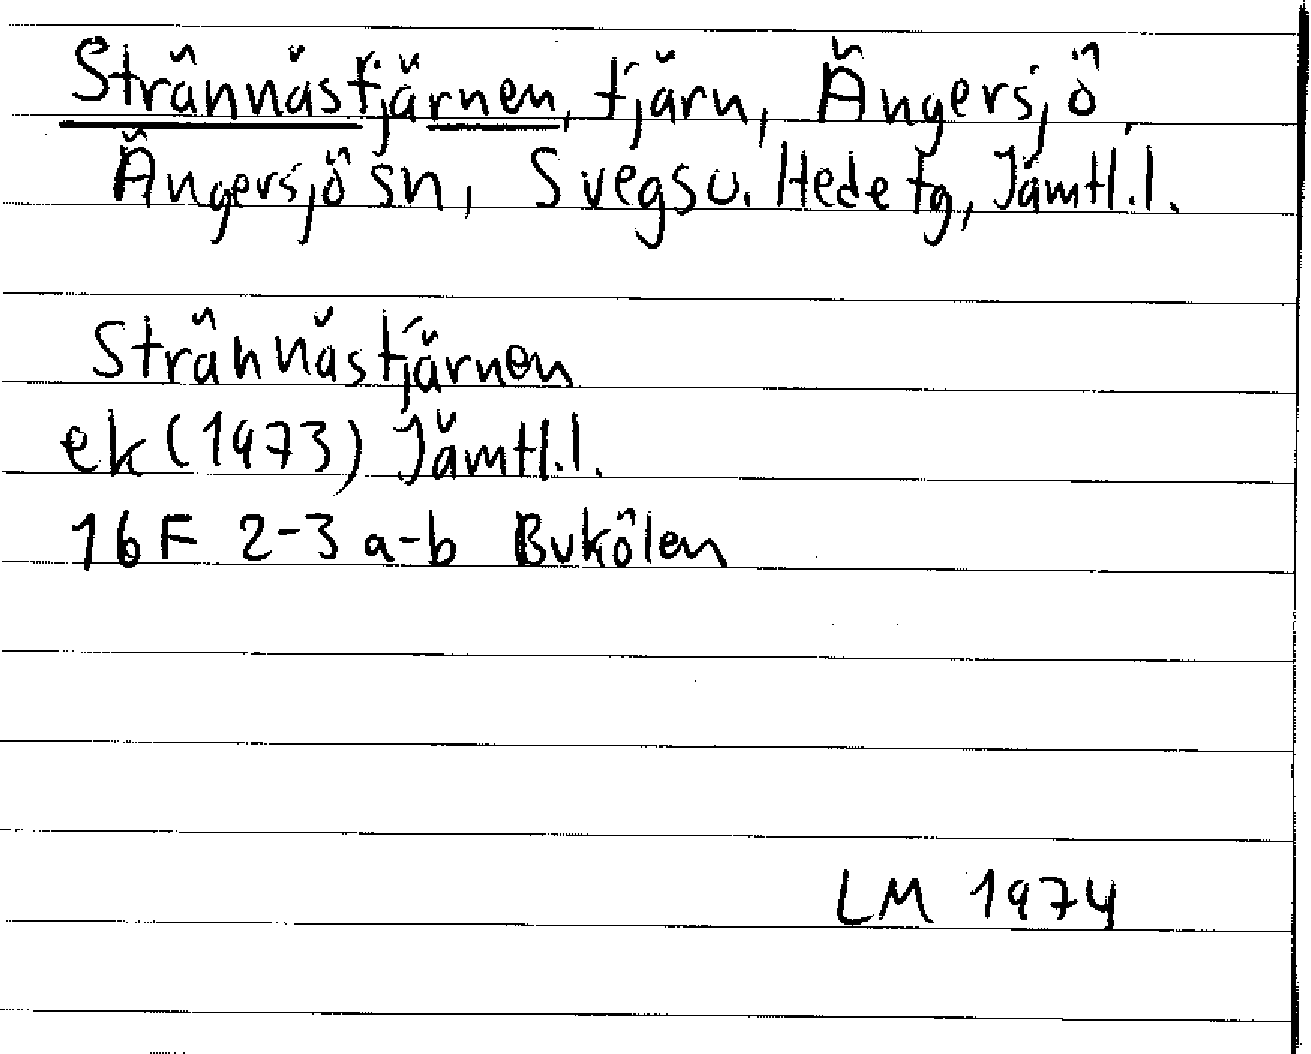 Strännästjärnen, tjärn, Ängersjö
Ängersjö sn, Svegs u. Hede tg, Jämtl.l.
Strännästjärnen
ek (1973) Jämtl.l.
16 F 2-3 a-b Bukölen
LM 1974